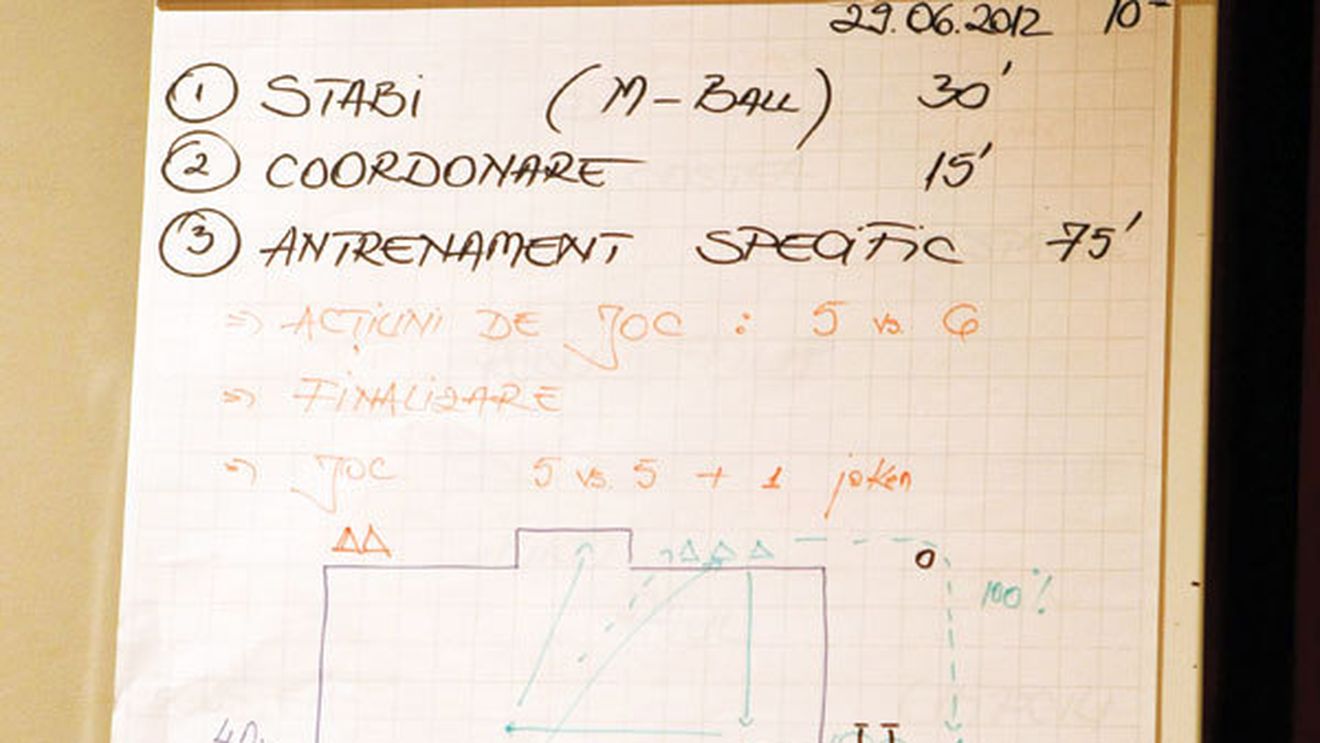 29.06.2012 10
1 STABI (M-BALL) 30'
2 COORDONARE 15'
3 ANTRENAMENT SPECIFIC 75'
=> ACȚIUNI DE JOC : 5 vs. 6
=> FINALIZARE
=> JOC 5 vs. 5 + 1 joker
100%